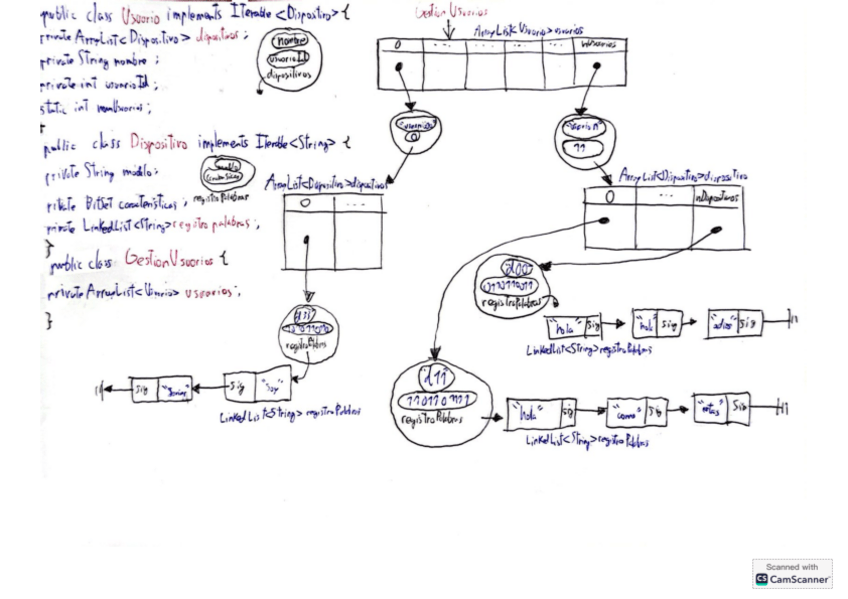 public class Usuario implements Iterable <Dispositivo> {
private ArrayList<Dispositivo> dipositivos;
private String nombre;
private int usuarioId;
static int numUsuarios;
}
nombre
usuarioId
dispositivos
public class Dispositivo implements Iterable<String> {
private String modelo;
private BitSet caracteristicas;
private LinkedList<String> registro palabras;
}
registroPalabras
public class GestionUsuarios {
private ArrayList<Usuario> usuarios;
}
Gestion Usuarios
ArrayList<Usuario> usuarios
0 ... ... ... nUsuarios
0
11
ArrayList<Dispositivo> dispositivos
0 ...
ArrayList<Dispositivo> dispositivo
0 ... nDispositivos
registroPalabras
"hola" sig
"hola" sig
"adios" sig
LinkedList<String> registroPalabras
registroPalabras
sig
sig "Soy"
LinkedList<String> registroPalabras
d11
registroPalabras
"hola" sig
"como" sig
"estas" sig
LinkedList<String> registroPalabras
Scanned with
CS CamScanner